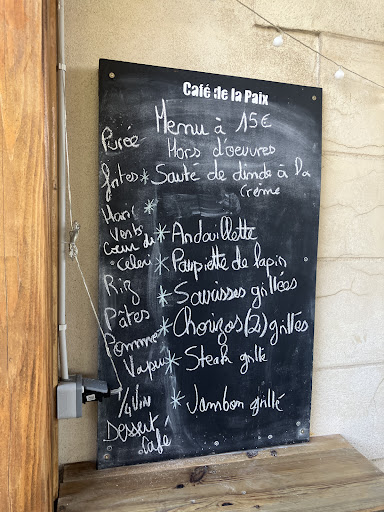 Café de la Paix
Menu à 15€
Hors d'oeuvres
Purée
frites * Sauté de dinde à la
crème
Haric *
Verts
Coeur de * Andouillette
céleri * Paupiette de lapin
Riz * Saucisses grillées
Pâtes * Chorizos (2) grillés
Pomme * Steak grillé
Vapeur
1/4 Vin * Jambon grillé
Dessert
Café